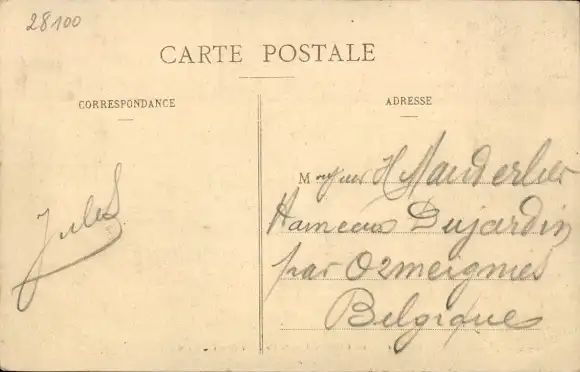 28100
CARTE POSTALE
CORRESPONDANCE
ADRESSE
Jules
M H Vanderlier
Hameau Dujardin
par Ormeignies
Belgique